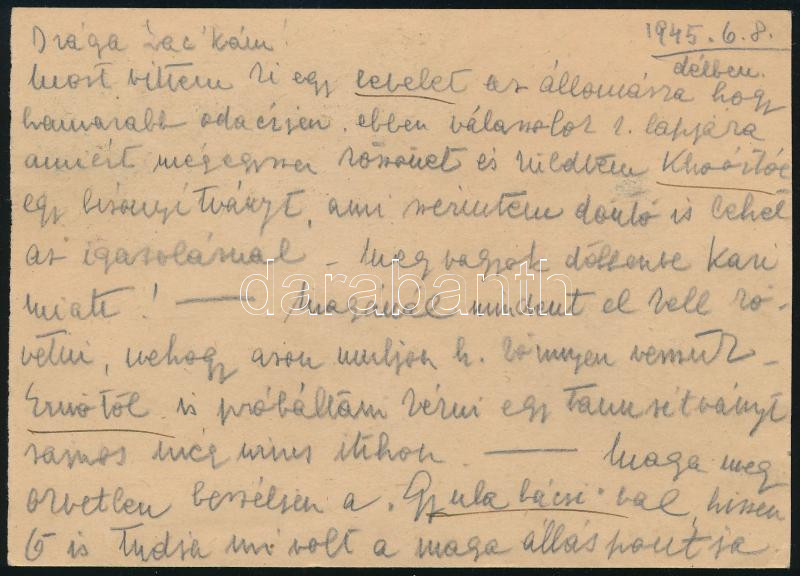 Drága Lac'kám! 1945. 6. 8.
délben.
Most vittem ki egy levelet az állomásra hogy
hamarabb odaérjen. ebben válaszolok l. lapjára
amiért mégegyszer köszönet és küldtem
egy bizonyítványt, ami szerintem döntő is lehet
az igazolásnál – meg vagyok döbbenve Kari
miatt! — Magánál mindent el kell kö-
vetni, nehogy azon muljon h. könnyen veszük –
Ernőtől is próbáltam kérni egy tanusítványt
sajnos még nincs itthon. — Maga meg
okvetlen beszéljen a "Gyula bácsi"val, hiszen
Ő is tudja mi volt a maga álláspontja
darabanth